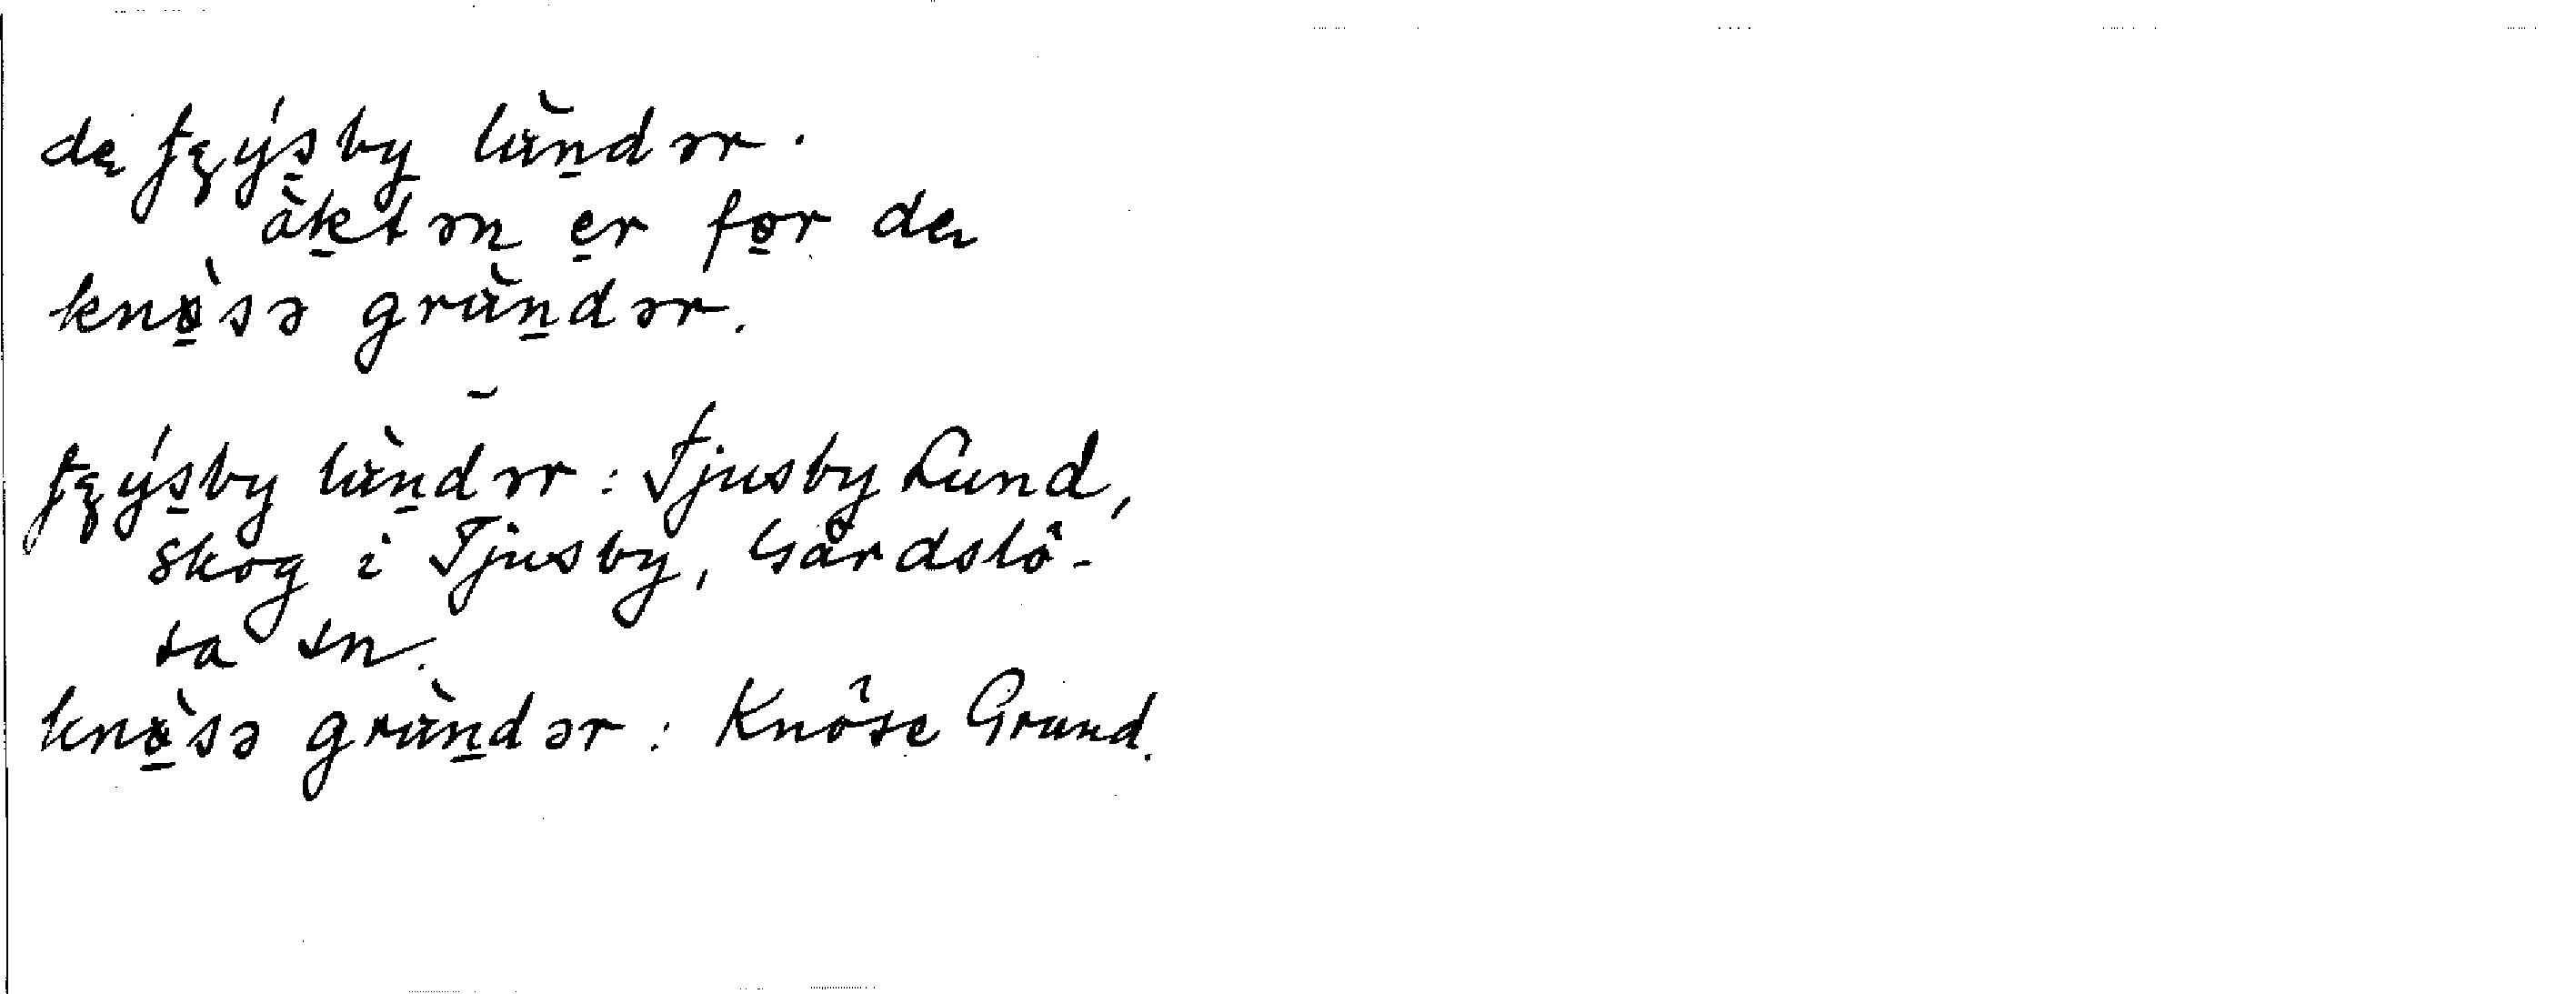 dę fęýs̱by lùṉdər.
àḵtən e̱r fo̱r de
knø̱̀sə grùṉdər.
fęýs̱by lùṉdər : Tjusby Lund,
skog i Tjusby, Gårdslö-
sa sn.
knø̱̀sə grùṉdər : Knöse Grund.